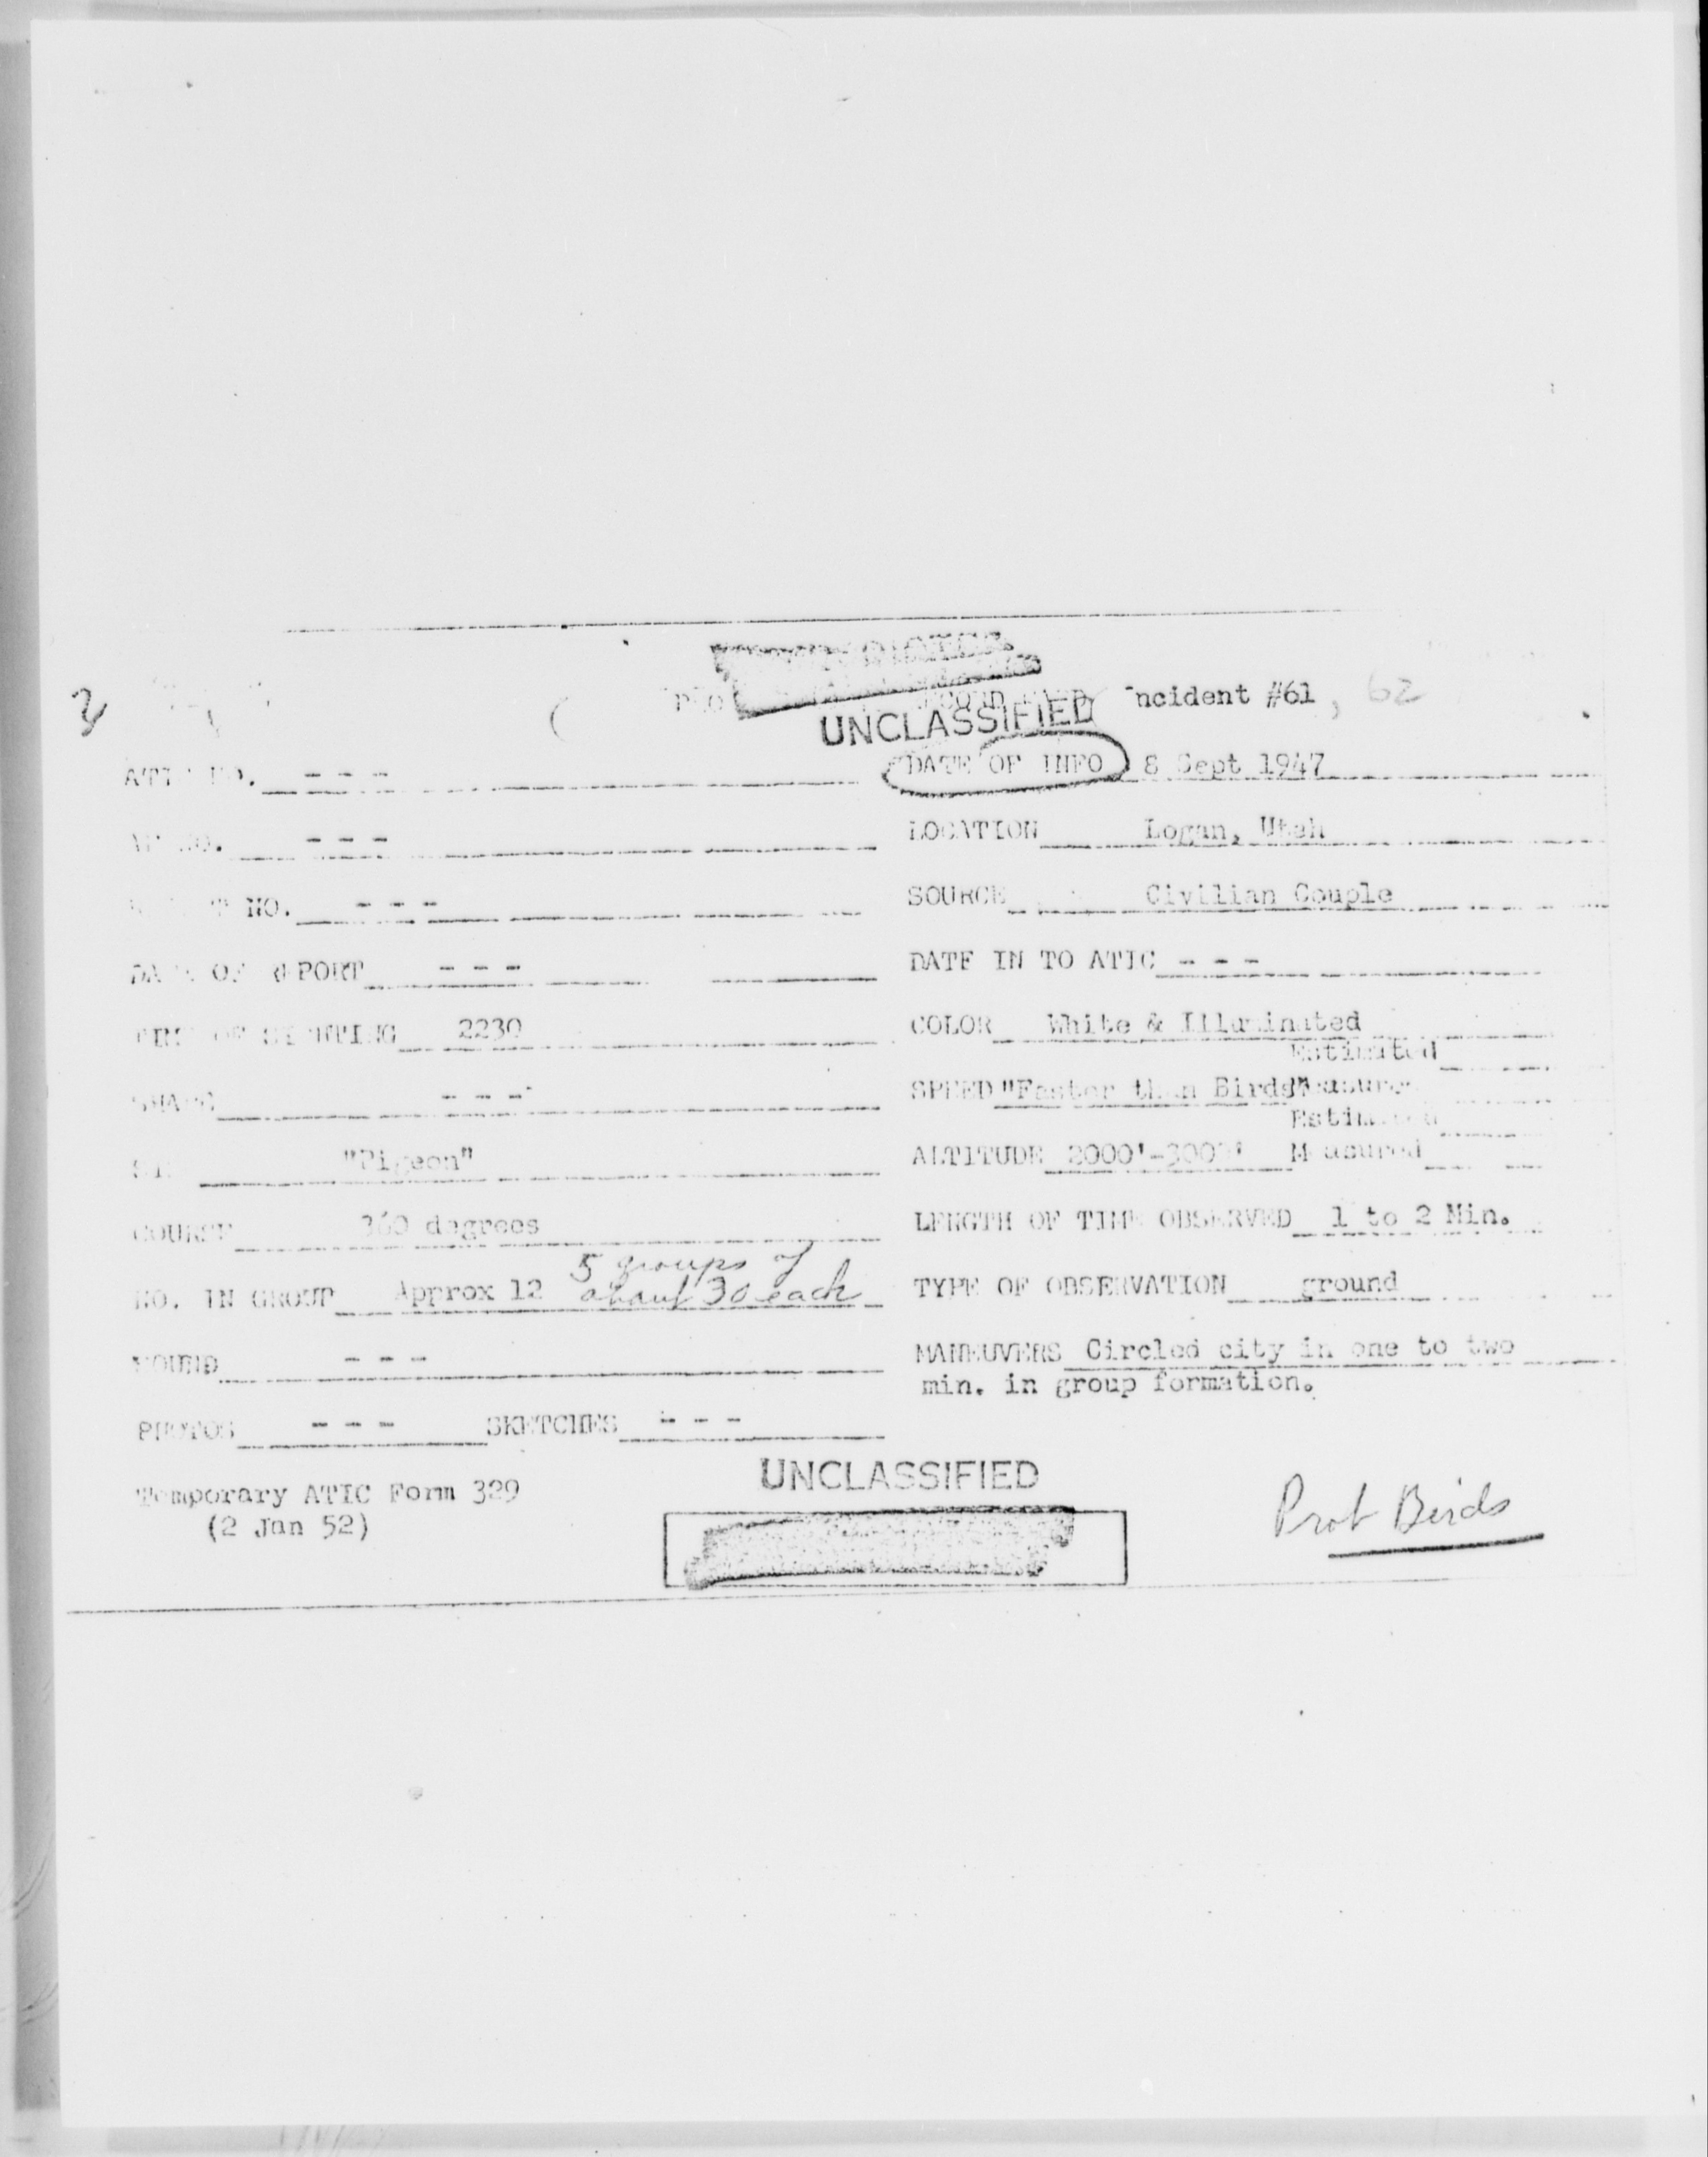 UNCLASSIFIED
ncident #61, 62
- - - DATE OF INFO 8 Sept 1947
- - - LOCATION Logan, Utah
NO. - - - SOURCE Civilian Couple
OF REPORT - - - DATE IN TO ATIC - - -
2230 COLOR White & Illuminated
Estimated
- - - SPEED "Faster than Birds" Measured
Estimated
"Pigeon" ALTITUDE 2000'-3000' Measured
COURSE 360 degrees LENGTH OF TIME OBSERVED 1 to 2 Min.
5 groups of
NO. IN GROUP Approx 12 about 30 each TYPE OF OBSERVATION ground
SOUND - - - MANEUVERS Circled city in one to two
min. in group formation.
PHOTOS - - - SKETCHES - - -
UNCLASSIFIED
Temporary ATIC Form 329
(2 Jan 52)
Prob Birds